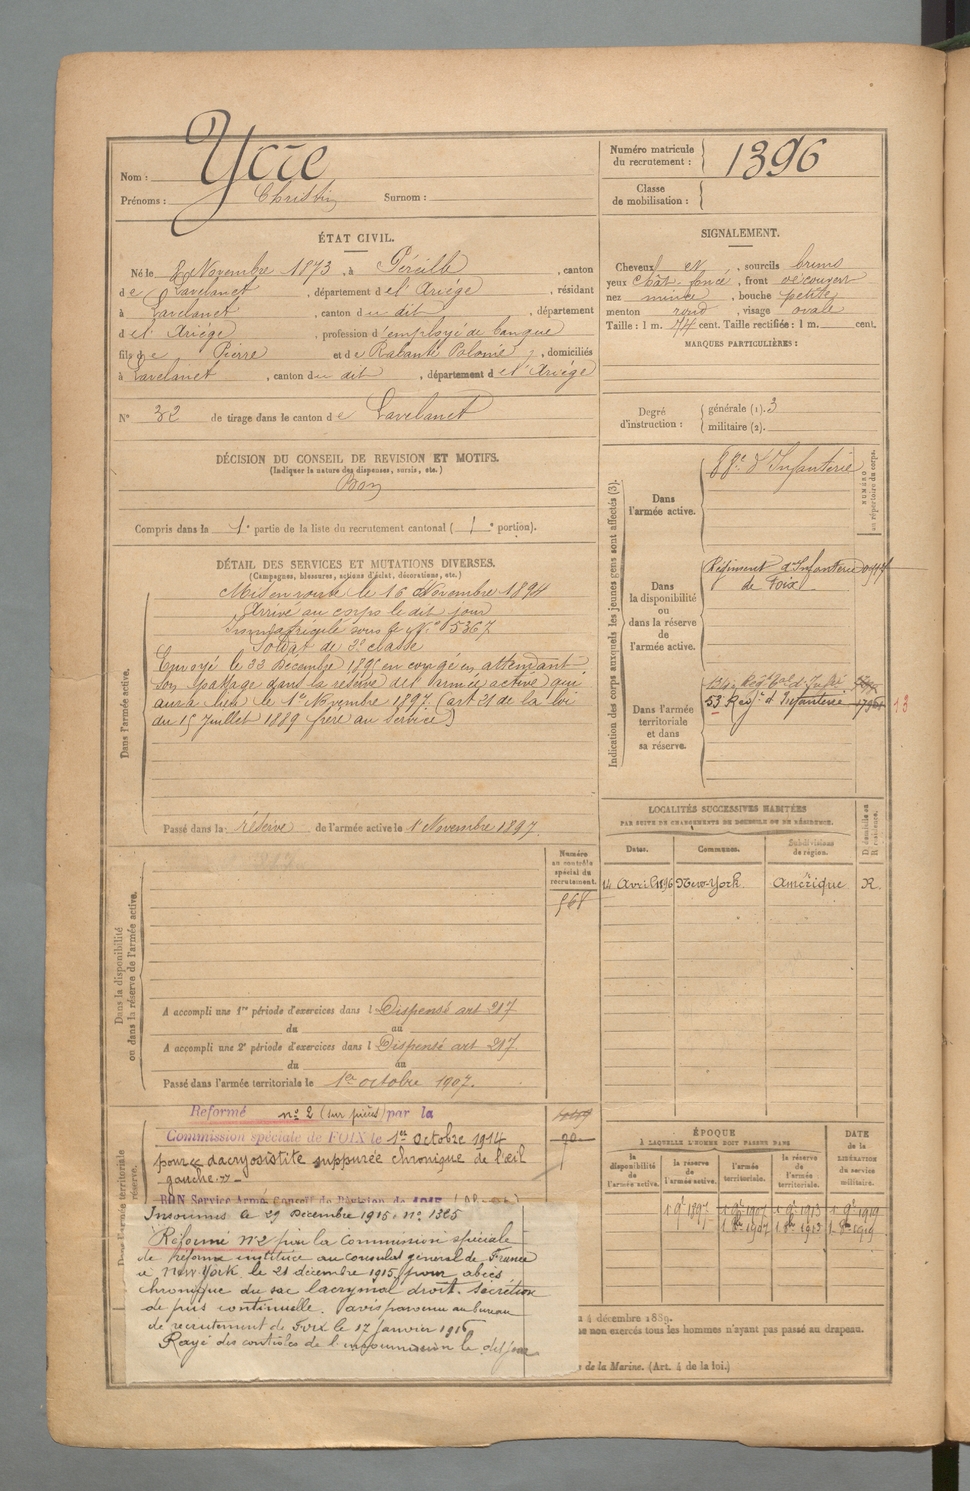 Nom : Ycre
Prénoms : Christin Surnom :
Numéro matricule du recrutement : 1396
Classe de mobilisation :
ÉTAT CIVIL.
Né le 8 Novembre 1873, à Péreille, canton
de Lavelanet, département de l'Ariège, résidant
à Lavelanet, canton du dit, département
de l'Ariège, profession d'employé de banque
fils de Pierre et de Rabanté Polonie, domiciliés
à Lavelanet, canton du dit, département de l'Ariège
N° 32 de tirage dans le canton de Lavelanet
SIGNALEMENT.
Cheveux et, sourcils bruns
yeux chât. foncé, front découvert
nez mince, bouche petite
menton rond, visage ovale
Taille : 1 m. 74 cent. Taille rectifiée : 1 m. cent.
MARQUES PARTICULIÈRES :
Degré d'instruction : générale (1). 3
militaire (2).
DÉCISION DU CONSEIL DE REVISION ET MOTIFS.
(Indiquer la nature des dispenses, sursis, etc.)
Bon
Compris dans la 1e partie de la liste du recrutement cantonal ( 1e portion).
DÉTAIL DES SERVICES ET MUTATIONS DIVERSES.
(Campagnes, blessures, actions d'éclat, décorations, etc.)
Dans l'armée active.
Mis en route le 16 Novembre 1894
Arrivé au corps le dit jour
Immatriculé sous le N° 5367
Soldat de 2e classe
Envoyé le 22 Décembre 1895 en congé en attendant
son passage dans la réserve de l'armée active qui
aura lieu le 1er Novembre 1897. (art 21 de la loi
du 15 Juillet 1889 frère au service)
Passé dans la réserve de l'armée active le 1 Novembre 1897.
Indication des corps auxquels les jeunes gens sont affectés (3).
NUMÉRO au répertoire du corps.
Dans l'armée active.
d'Infanterie
Dans la disponibilité ou dans la réserve de l'armée active.
Régiment d'Infanterie
de Foix
Dans l'armée territoriale et dans sa réserve.
134e Régt tal d'Infie
53 Regt d'Infanterie
13
LOCALITÉS SUCCESSIVES HABITÉES
PAR SUITE DE CHANGEMENTS DE DOMICILE OU DE RÉSIDENCE.
Dates. Communes. Subdivisions de région. D. domicile ou R. résidence.
14 Avril 1896 New-York. Amérique R.
Dans la disponibilité ou dans la réserve de l'armée active.
Numéro au contrôle spécial du recrutement.
568
A accompli une 1re période d'exercices dans l Dispensé art 217
du au
A accompli une 2e période d'exercices dans l Dispensé art 217
du au
Passé dans l'armée territoriale le 1er octobre 1907.
Dans l'armée territoriale
réserve.
Réformé n° 2 (sur pièces) par la
Commission spéciale de FOIX le 1er Octobre 1914
pour dacryosistite suppurée chronique de l'œil
gauche
BON Service Armé Conseil de Révision de 1915
Insoumis le 29 Décembre 1915. n° 1325
Réformé N°2 par la Commission spéciale
de réforme instituée au consulat général de France
à New-York le 21 décembre 1915 pour abcès
chronique du sac lacrymal droit. Sécrétion
de pus continuelle. avis parvenu au bureau
de recrutement de Foix le 17 janvier 1916
Rayé des contrôles de l'insoumission le dit jour
ÉPOQUE
À LAQUELLE L'HOMME DOIT PASSER DANS
DATE DE LA LIBÉRATION du service militaire.
la disponibilité de l'armée active. la réserve de l'armée active. l'armée territoriale. la réserve de l'armée territoriale.
1 9bre 1897 1 9bre 1907 1 9bre 1913 1 9bre 1919
1 8bre 1907 1 8bre 1913 1 8bre 1919
4 décembre 1889.
non exercés tous les hommes n'ayant pas passé au drapeau.
de la Marine. (Art. 4 de la loi.)